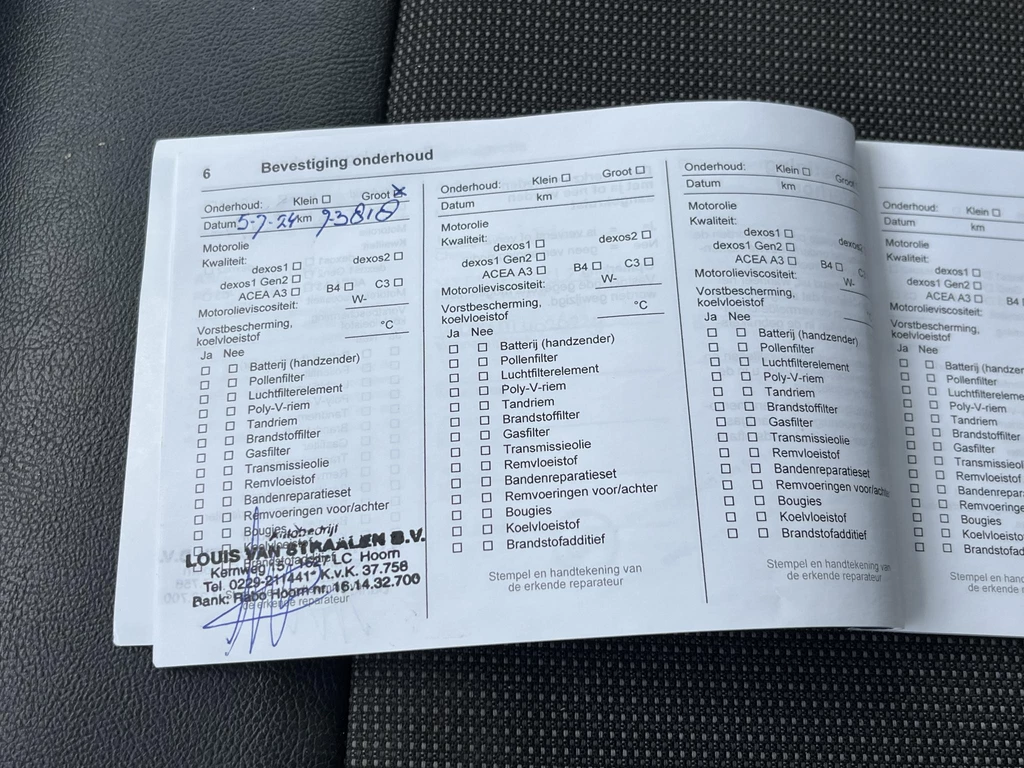 6 Bevestiging onderhoud
Onderhoud: Klein Groot
Datum 5-7-24 km 93818
Motorolie
Kwaliteit:
dexos1 dexos2
dexos1 Gen2
ACEA A3 B4 C3
Motorolieviscositeit: W-
Vorstbescherming,
koelvloeistof °C
Ja Nee
Batterij (handzender)
Pollenfilter
Luchtfilterelement
Poly-V-riem
Tandriem
Brandstoffilter
Gasfilter
Transmissieolie
Remvloeistof
Bandenreparatieset
Remvoeringen voor/achter
Bougies
Koelvloeistof
Brandstofadditief
Autobedrijf
LOUIS VAN STRAALEN B.V.
Kernweg 15 / 1627 LC Hoorn
Tel 0229-211441* K.v.K. 37.758
Bank: Rabo Hoorn nr. 16.14.32.700
de erkende reparateur
Onderhoud: Klein Groot
Datum km
Motorolie
Kwaliteit:
dexos1 dexos2
dexos1 Gen2
ACEA A3 B4 C3
Motorolieviscositeit: W-
Vorstbescherming,
koelvloeistof °C
Ja Nee
Batterij (handzender)
Pollenfilter
Luchtfilterelement
Poly-V-riem
Tandriem
Brandstoffilter
Gasfilter
Transmissieolie
Remvloeistof
Bandenreparatieset
Remvoeringen voor/achter
Bougies
Koelvloeistof
Brandstofadditief
Stempel en handtekening van
de erkende reparateur
Onderhoud: Klein Groot
Datum km
Motorolie
Kwaliteit:
dexos1 dexos2
dexos1 Gen2
ACEA A3 B4 C
Motorolieviscositeit: W-
Vorstbescherming,
koelvloeistof
Ja Nee
Batterij (handzender)
Pollenfilter
Luchtfilterelement
Poly-V-riem
Tandriem
Brandstoffilter
Gasfilter
Transmissieolie
Remvloeistof
Bandenreparatieset
Remvoeringen voor/achte
Bougies
Koelvloeistof
Brandstofadditief
Stempel en handtekening van
de erkende reparateur
Onderhoud: Klein
Datum km
Motorolie
Kwaliteit:
dexos1
dexos1 Gen2
ACEA A3 B4
Motorolieviscositeit:
Vorstbescherming,
koelvloeistof
Ja Nee
Batterij (handzen
Pollenfilter
Luchtfiltereleme
Poly-V-riem
Tandriem
Brandstoffilter
Gasfilter
Transmissieol
Remvloeistof
Bandenrepara
Remvoeringe
Bougies
Koelvloeisto
Brandstofad
Stempel en hand
de erkende r